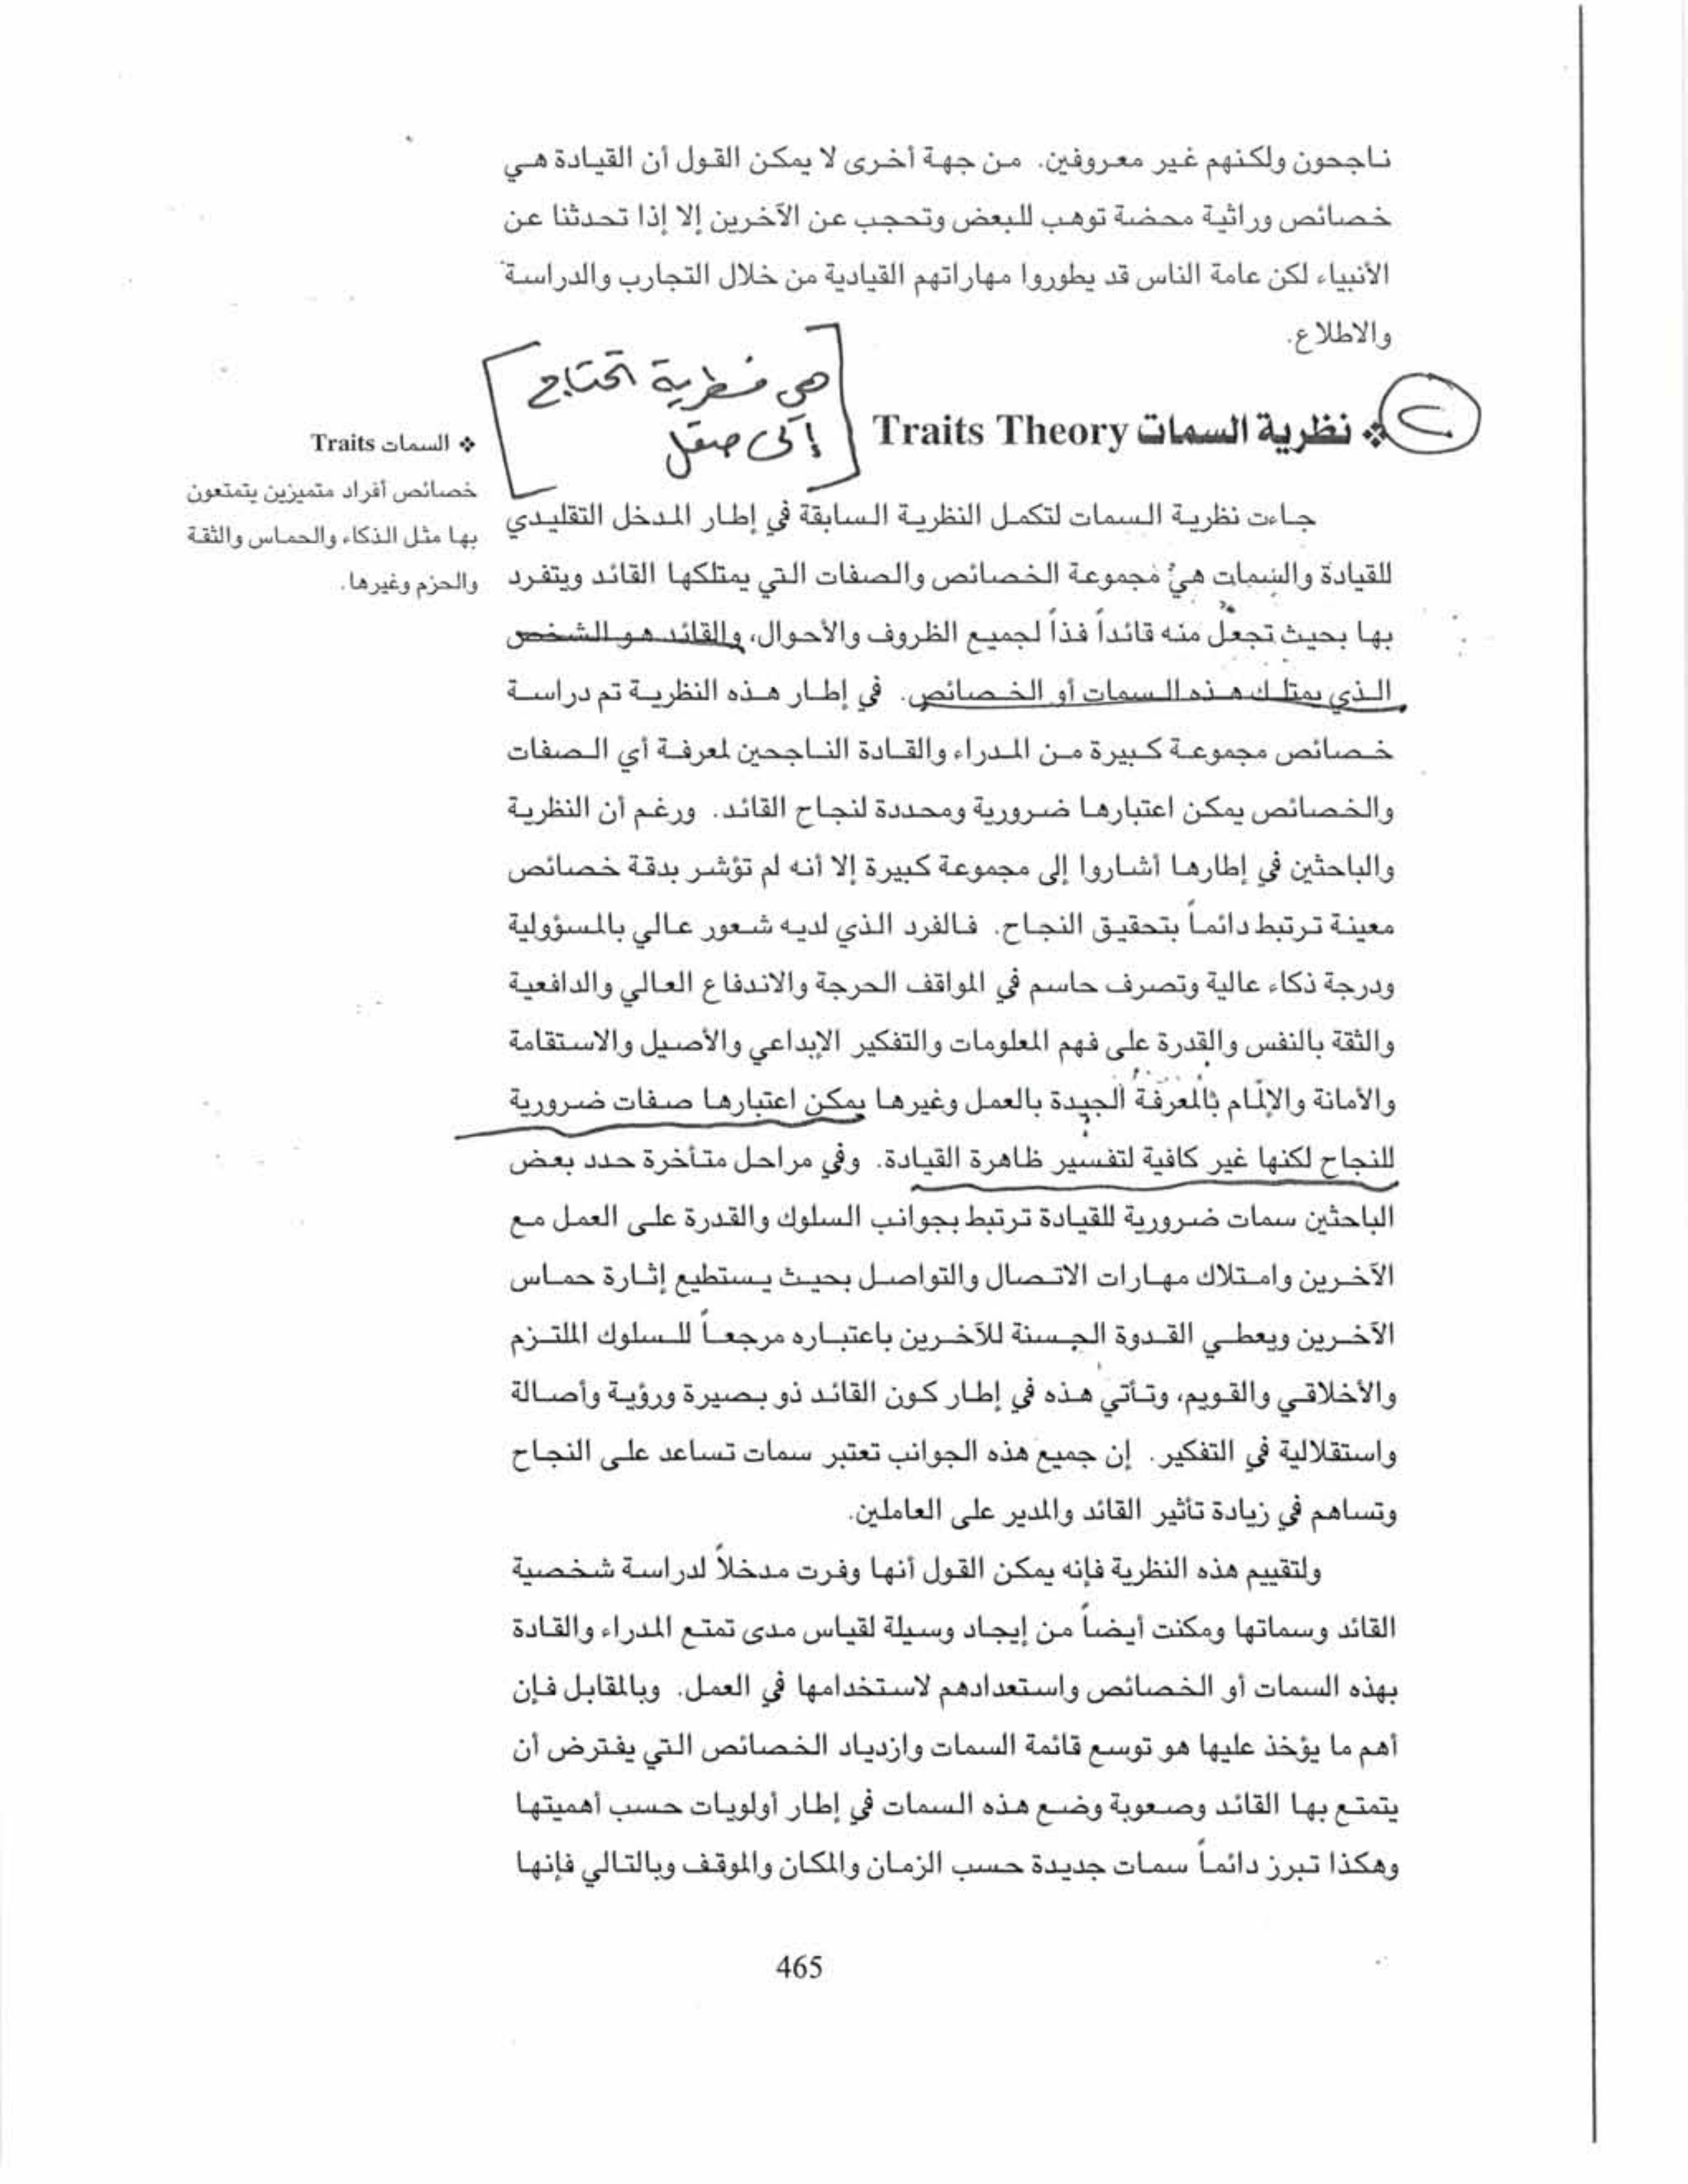 ناجحون ولكنهم غير معروفين. من جهة أخرى لا يمكن القول أن القيادة هي
خصائص وراثية محضة توهب للبعض وتحجب عن الآخرين إلا إذا تحدثنا عن
الأنبياء، لكن عامة الناس قد يطوروا مهاراتهم القيادية من خلال التجارب والدراسة
والاطلاع.
٢
❖ نظرية السمات Traits Theory
هي فطرية تحتاج
إلى صقل
❖ السمات Traits
خصائص أفراد متميزين يتمتعون
بها مثل الذكاء والحماس والثقة
والحزم وغيرها.
جاءت نظرية السمات لتكمل النظرية السابقة في إطار المدخل التقليدي
للقيادة والسمات هي مجموعة الخصائص والصفات التي يمتلكها القائد ويتفرد
بها بحيث تجعل منه قائداً فذاً لجميع الظروف والأحوال، والقائد هو الشخص
الذي يمتلك هذه السمات أو الخصائص. في إطار هذه النظرية تم دراسة
خصائص مجموعة كبيرة من المدراء والقادة الناجحين لمعرفة أي الصفات
والخصائص يمكن اعتبارها ضرورية ومحددة لنجاح القائد. ورغم أن النظرية
والباحثين في إطارها أشاروا إلى مجموعة كبيرة إلا أنه لم تؤشر بدقة خصائص
معينة ترتبط دائماً بتحقيق النجاح. فالفرد الذي لديه شعور عالي بالمسؤولية
ودرجة ذكاء عالية وتصرف حاسم في المواقف الحرجة والاندفاع العالي والدافعية
والثقة بالنفس والقدرة على فهم المعلومات والتفكير الإبداعي والأصيل والاستقامة
والأمانة والإلمام بالمعرفة الجيدة بالعمل وغيرها يمكن اعتبارها صفات ضرورية
للنجاح لكنها غير كافية لتفسير ظاهرة القيادة. وفي مراحل متأخرة حدد بعض
الباحثين سمات ضرورية للقيادة ترتبط بجوانب السلوك والقدرة على العمل مع
الآخرين وامتلاك مهارات الاتصال والتواصل بحيث يستطيع إثارة حماس
الآخرين ويعطي القدوة الحسنة للآخرين باعتباره مرجعاً للسلوك الملتزم
والأخلاقي والقويم، وتأتي هذه في إطار كون القائد ذو بصيرة ورؤية وأصالة
واستقلالية في التفكير. إن جميع هذه الجوانب تعتبر سمات تساعد على النجاح
وتساهم في زيادة تأثير القائد والمدير على العاملين.
ولتقييم هذه النظرية فإنه يمكن القول أنها وفرت مدخلاً لدراسة شخصية
القائد وسماتها ومكنت أيضاً من إيجاد وسيلة لقياس مدى تمتع المدراء والقادة
بهذه السمات أو الخصائص واستعدادهم لاستخدامها في العمل. وبالمقابل فإن
أهم ما يؤخذ عليها هو توسع قائمة السمات وازدياد الخصائص التي يفترض أن
يتمتع بها القائد وصعوبة وضع هذه السمات في إطار أولويات حسب أهميتها
وهكذا تبرز دائماً سمات جديدة حسب الزمان والمكان والموقف وبالتالي فإنها
465